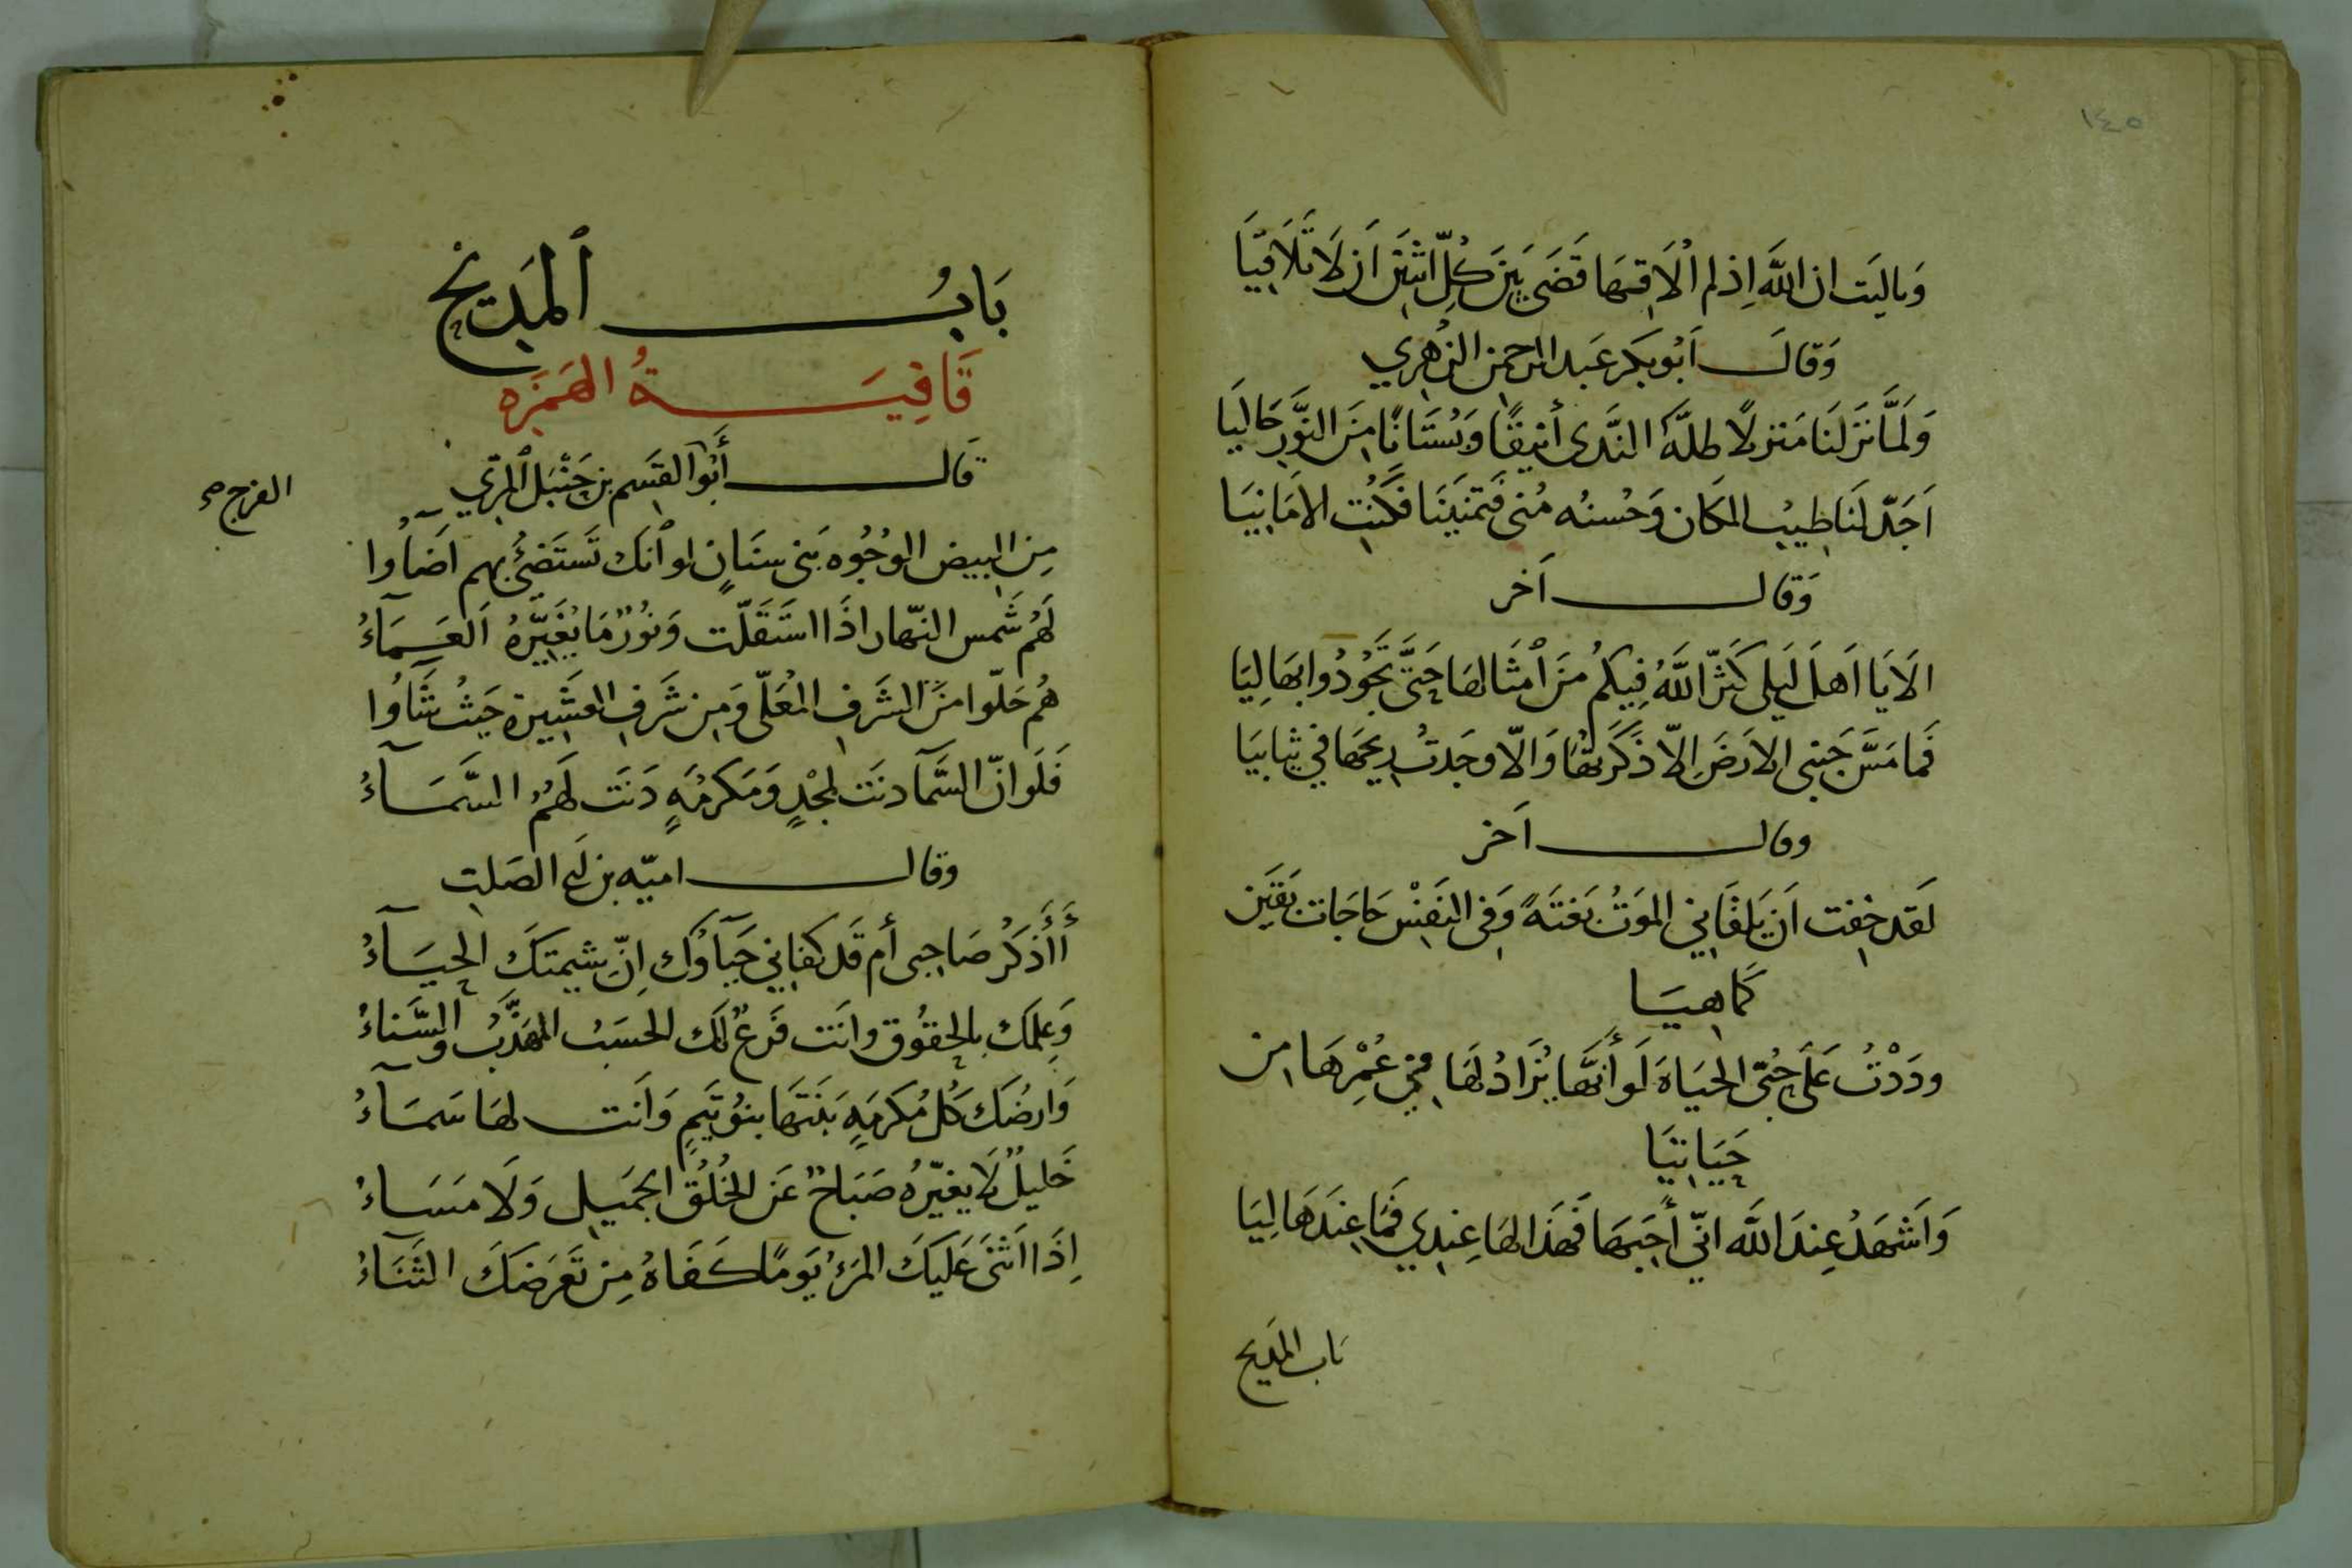 ١٤٥
وَياليَت ان اللَّه اِذ لم اُلاَقِهَا قَضَى بَيَن كُلِّ اثنَيَن اَن لاَ تَلاَقِيَا
وَقالَ اَبُو بكر عَبد الرحمن الزهري
وَلَمَّا نَزَلنَا مَنزلاً طلَّهُ النَّدَى أنيقًا وَبُستَانًا مِنَ النَّورِ حَاليَا
اَجَدّ لنَا طِيبُ المكَان وَحُسنُه مُنى فَتمنيَنَا فكُنتِ الامَانِيَا
وَقال اَخر
الاَيَا اَهلَ لَيلى كَثّرَ اللَّهُ فِيكُم مِنَ اَمثَالهَا حَتَّى تَجُودُوا بهَا لِيَا
فَما مَسَّ جَنبى الارَضَ اِلاّ ذَكَرتهَا وَالاّ وجَدتُ رِيحَهَا فِي ثيابيَا
وقال اَخر
لَقد خِفت اَن يَلقَانِي الموَتُ بَغتَةً وَفِى النَفِسْ حَاجَات بَقَين
كمَا هِيَا
ودَدْتُ عَلَى حُبّى الحيَاةَ لَو أنهَّا يُزَادُ لهَا فِي عُمْرِهَا مِن
حَيَاتيَا
وَاَشهَدُ عِندَ اللَّه انّي أُحِبهَا فَهَذَا لهَا عِندِي فَمَا عِندَهَا لِيَا
بَاب المَديح
بَابُ اَلمَديح
قَافِيَةُ الهَمزَه
قَال أَبُوا القسَم بن حَنبَل المرّي
الفرج صح
مِنَ البيض الوُجُوه بَنى سنَانٍ لو اَنكَ تَستَضئُ بهم اَضَآؤا
لَهُم شَمس النّهار اذَا استَقَلّت وَنُورٌ مَا يُغَيّرهُ اَلعَمَاءُ
هُم حَلّوا منَ الشَرفِ المُعَلّى وَمِن شَرفِ العَشِيرة حَيثُ شَاؤُا
فَلَو انّ السَّمآ دنَت لمجْدٍ وَمَكرمُةٍ دَنَت لَهمُ السَّمَآءُ
وقال اميّه بن ابى الصَلتِ
أَأَذكُر صَاجَتِى أم قَد كفاني حَيَآوُك اِنّ شيمتَكَ الحيَآءُ
وَعِلمك بالحقوُق وانَت فَرعٌ لَك الحسَبُ المهَذَّبُ والسَّناءُ
وَارضُكَ كُلُ مُكرمَةٍ بَنَتهَا بنوُ تَيمٍ وَاَنت لهَا سَمَاءُ
خَليلٌ لاَ يغيّرهُ صَبَاحٌ عَن الخُلُق الجَميِل وَلاَ مَسَاءُ
اِذَا اَثنَى عَلَيكَ المرَءُ يَومًا كَفَاهُ مِن تَعَرضكَ الثَنَاءُ